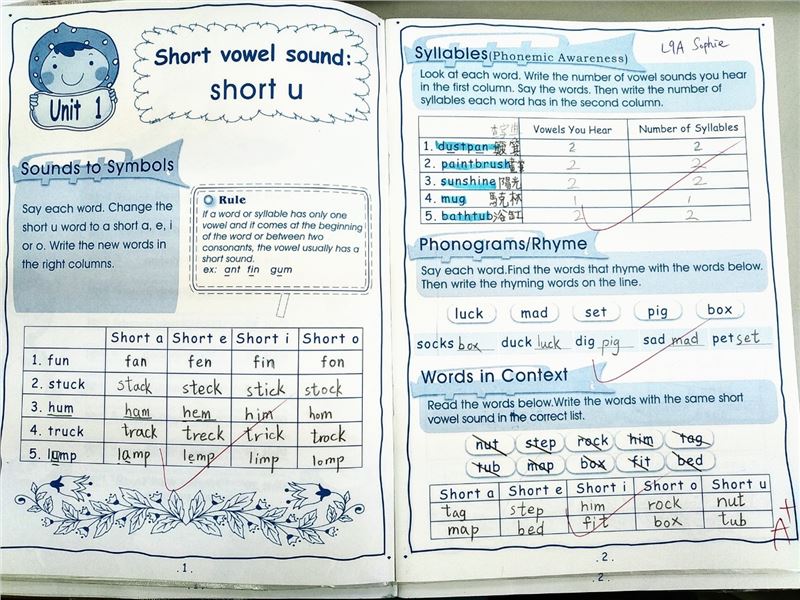 Short vowel sound:
short u
Unit 1
Sounds to Symbols
Say each word. Change the
short u word to a short a, e, i
or o. Write the new words in
the right columns.
Rule
If a word or syllable has only one
vowel and it comes at the beginning
of the word or between two
consonants, the vowel usually has a
short sound.
ex: ant fin gum
Short a Short e Short i Short o
1. fun fan fen fin fon
2. stuck stack steck stick stock
3. hum ham hem him hom
4. truck track treck trick trock
5. lump lamp lemp limp lomp
.1.
L9A Sophie
Syllables(Phonemic Awareness)
Look at each word. Write the number of vowel sounds you hear
in the first column. Say the words. Then write the number of
syllables each word has in the second column.
Vowels You Hear Number of Syllables
1. dustpan 2 2
2. paintbrush 2 2
3. sunshine 陽光 2 2
4. mug 馬克杯 1 1
5. bathtub 浴缸 2 2
Phonograms/Rhyme
Say each word.Find the words that rhyme with the words below.
Then write the rhyming words on the line.
luck mad set pig box
socks box duck luck dig pig sad mad pet set
Words in Context
Read the words below.Write the words with the same short
vowel sound in the correct list.
nut step rock him tag
tub map box fit bed
Short a Short e Short i Short o Short u
tag step him rock nut
map bed fit box tub
A+
.2.
.2.